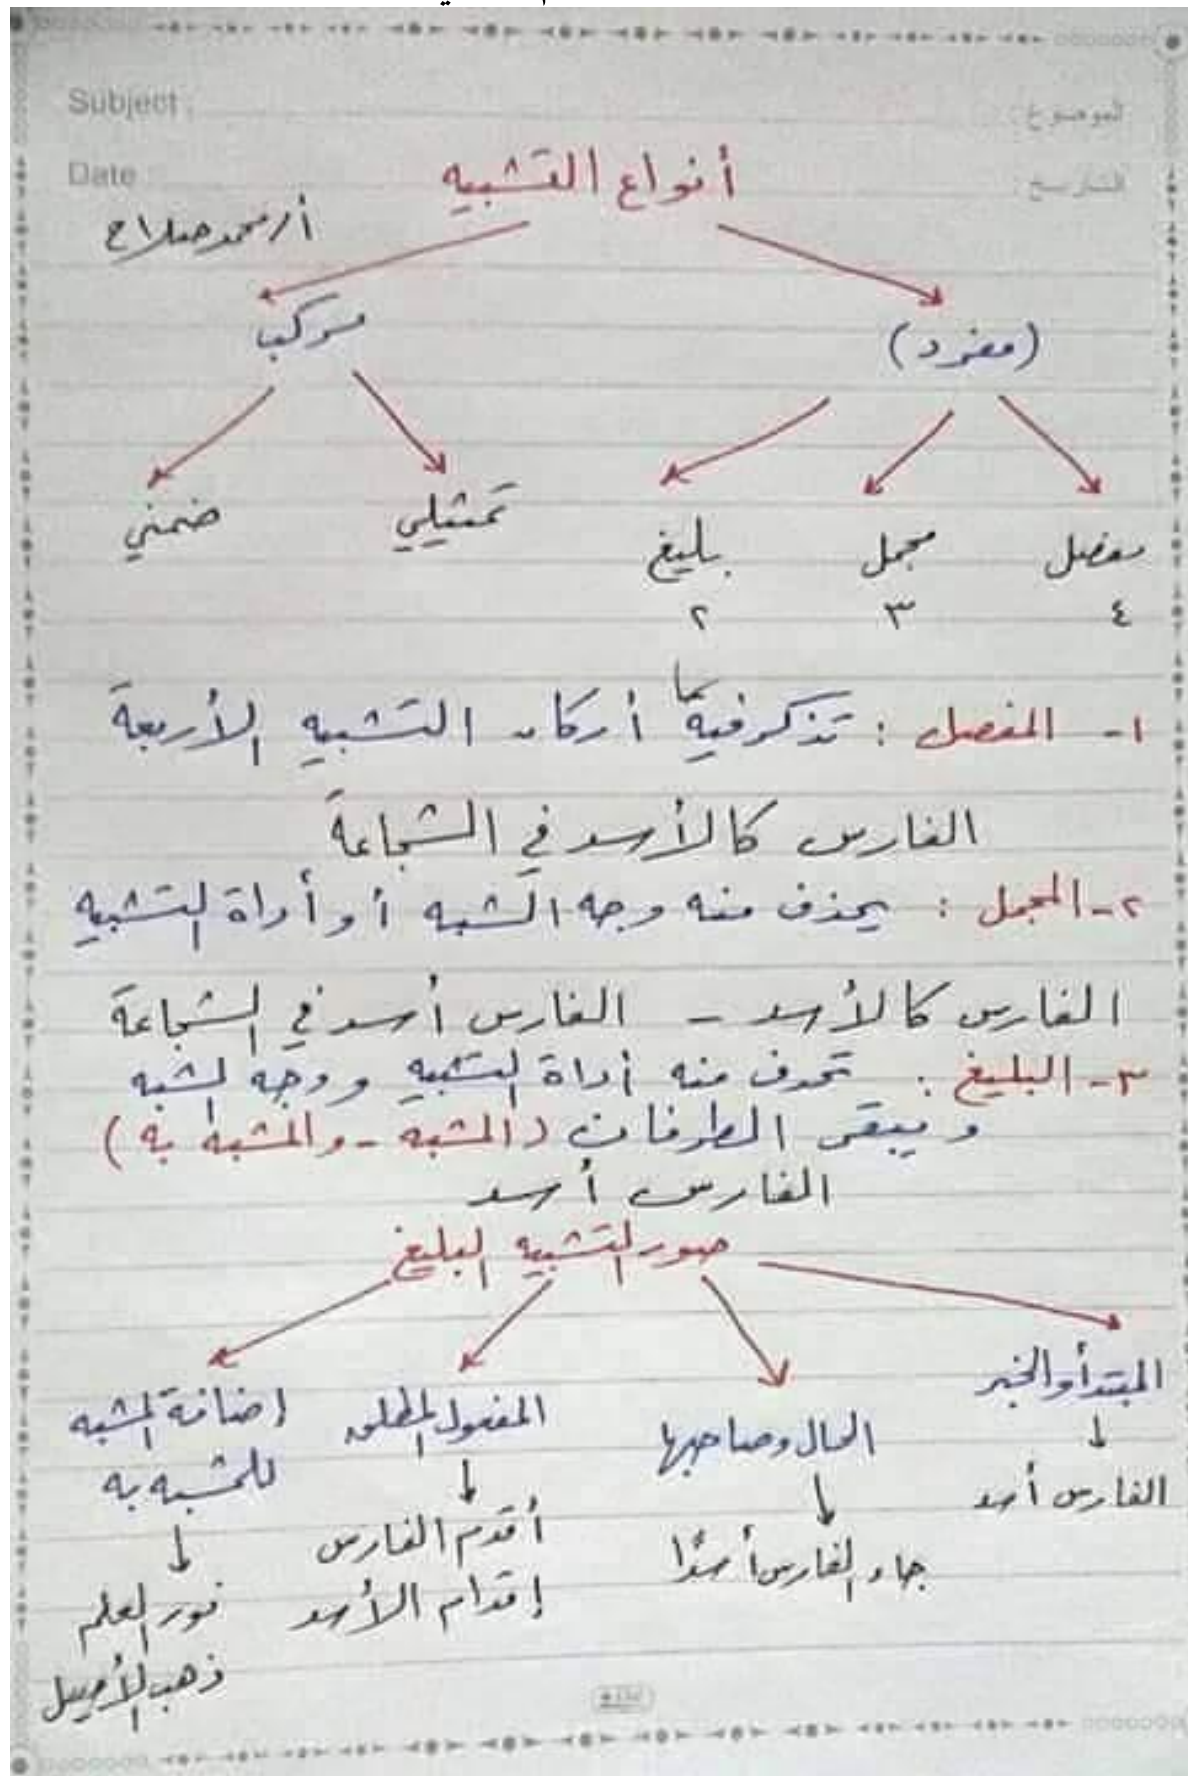 Subject : الموضوع :
Date : التاريخ :
أنواع التشبيه
أ/محمد صلاح
(مفرد) مركب
مفصل مجمل بليغ تمثيلي ضمني
٤ ٣ ٢
١- المفصل : تذكر فيه أركان التشبيه الأربعة
الفارس كالأسد في الشجاعة
٢- المجمل : يحذف منه وجه الشبه أو أداة التشبيه
الفارس كالأسد - الفارس أسد في الشجاعة
٣- البليغ : تحذف منه أداة التشبيه ووجه الشبه
ويبقى الطرفان (المشبه - والمشبه به)
الفارس أسد
صور التشبيه البليغ
المبتدأ والخبر
الفارس أسد
الحال وصاحبها
جاء الفارس أسدًا
المفعول المطلق
أقدم الفارس
إقدام الأسد
إضافة المشبه
للمشبه به
نور العلم
ذهب الأصيل